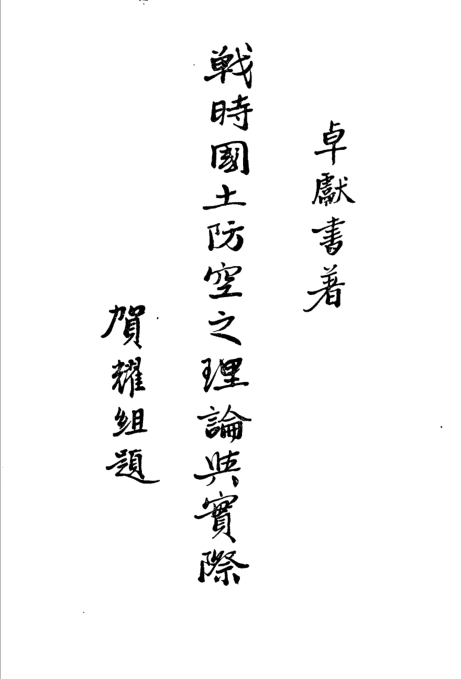 卓獻書著
戰時國土防空之理論與實際
賀耀組題